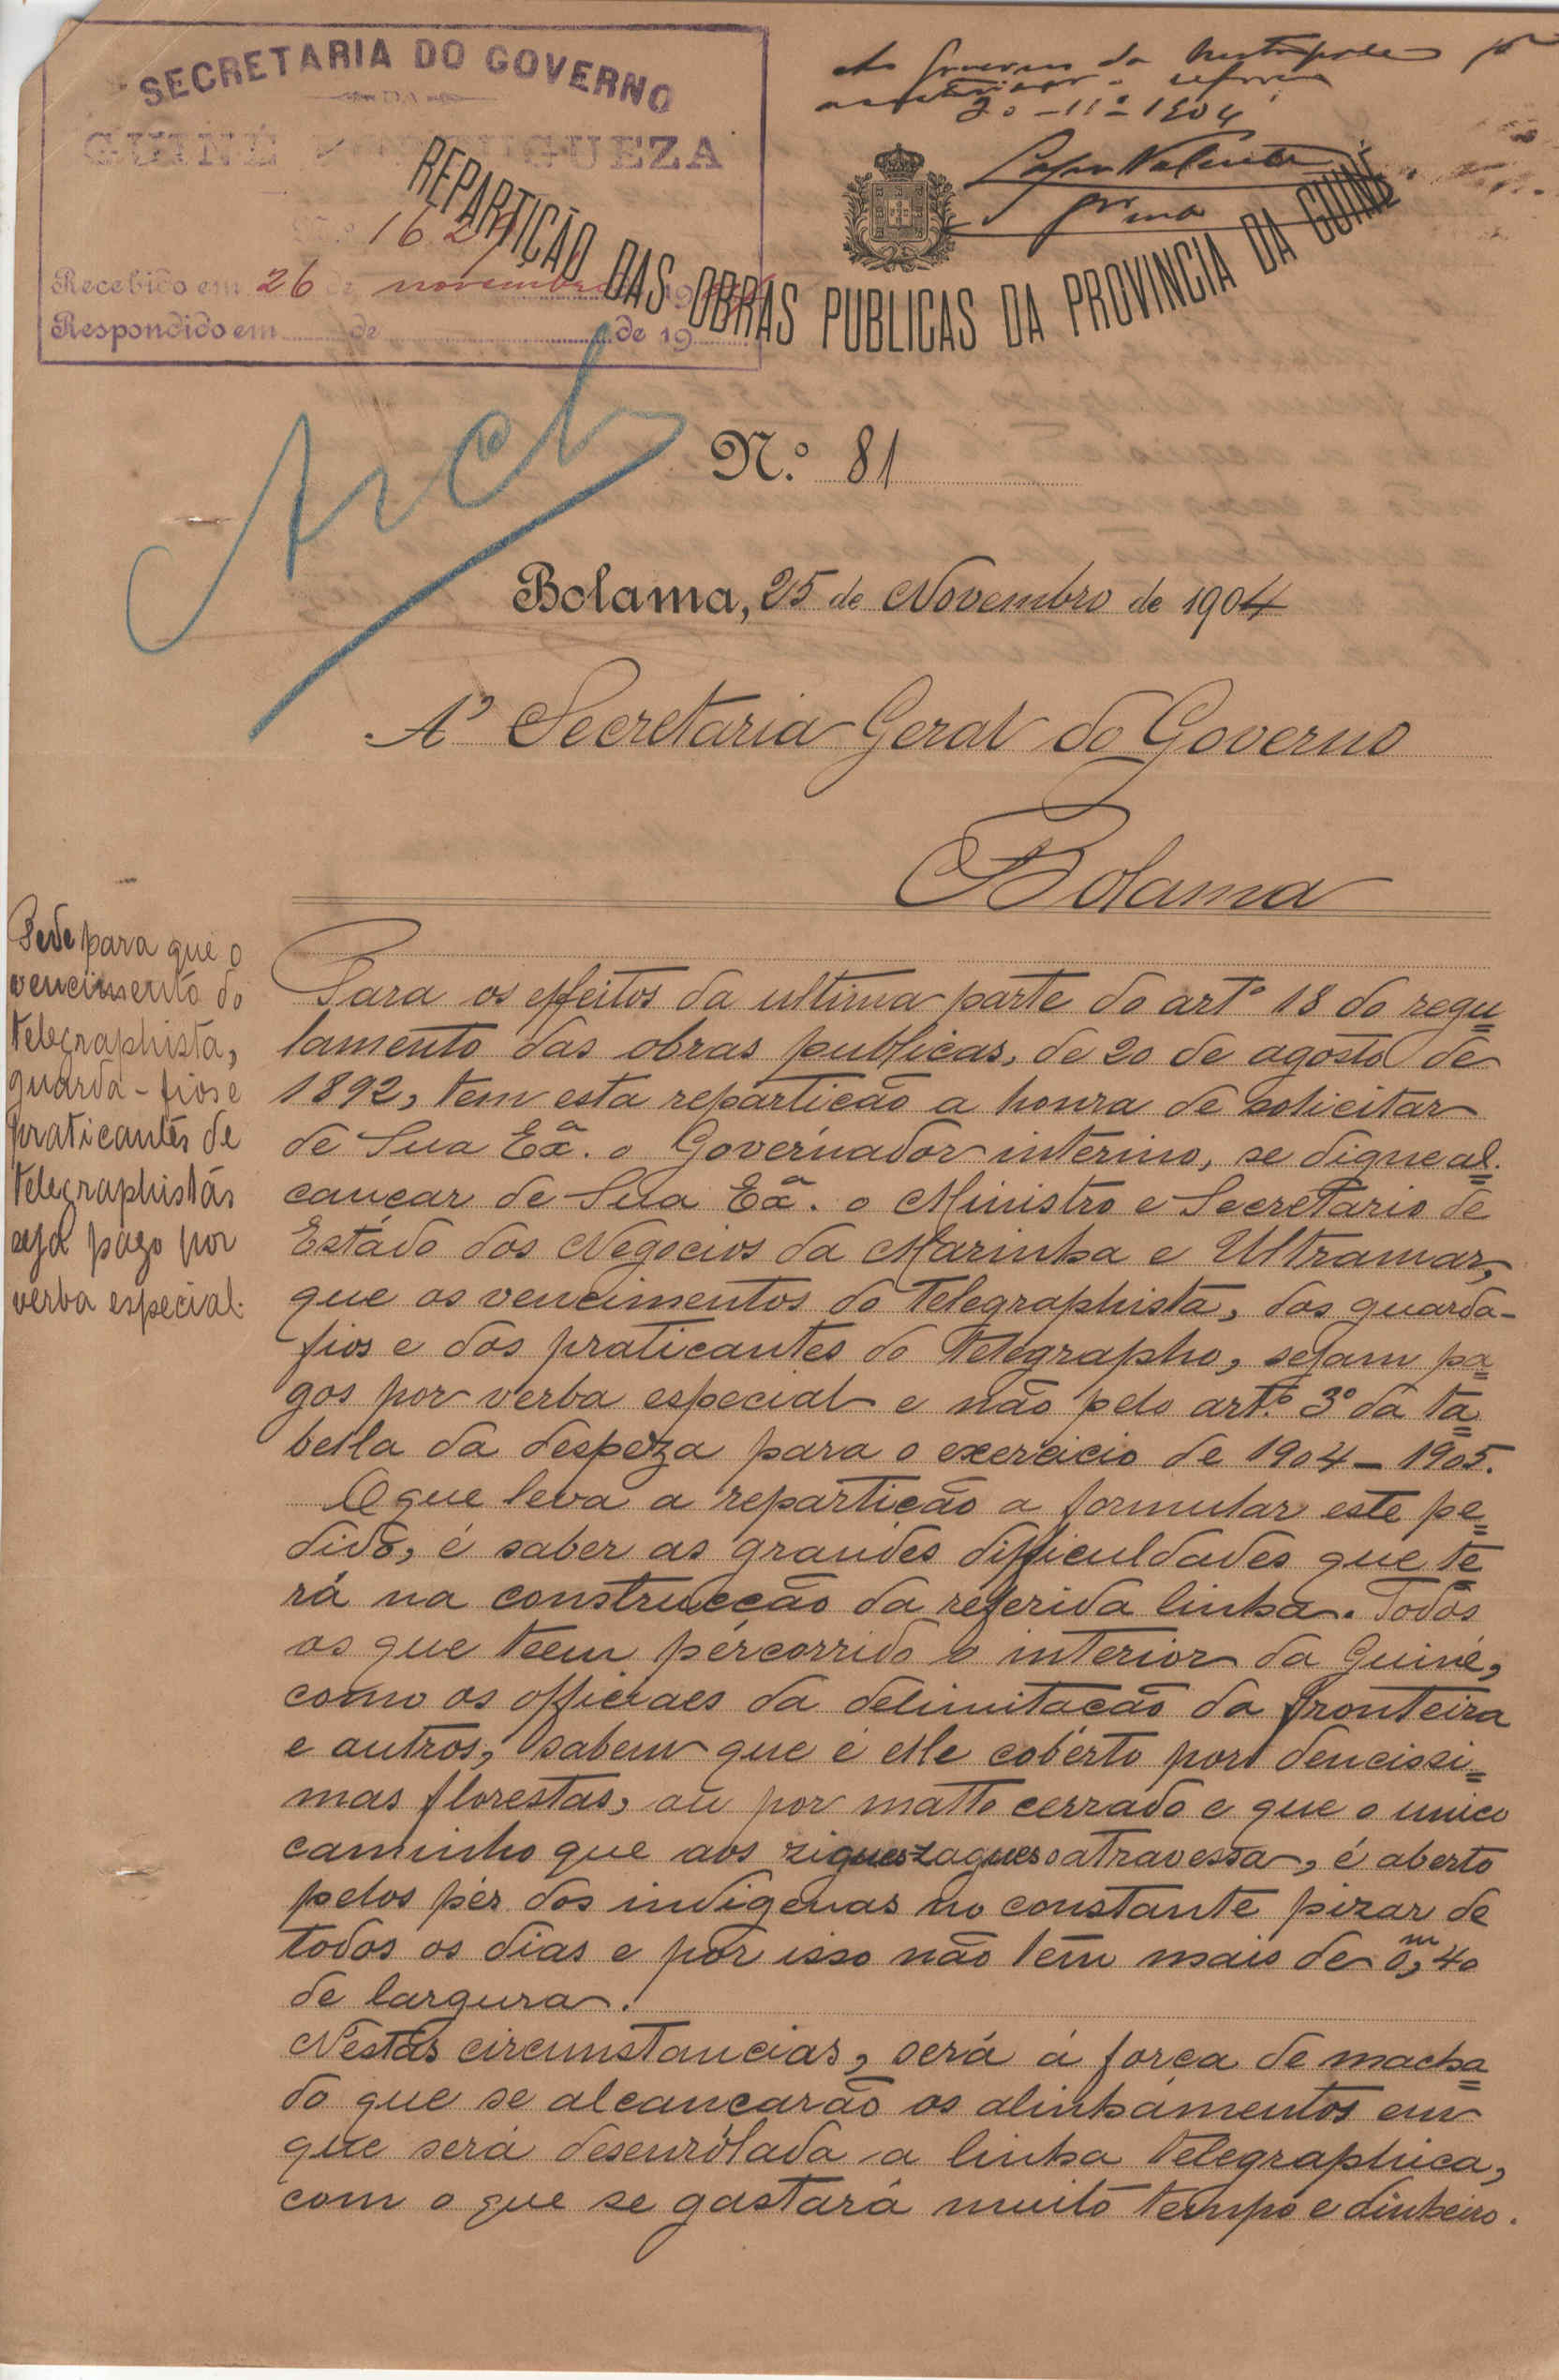 SECRETARIA DO GOVERNO
DA
GUINÉ PORTUGUEZA
N.º 162
Recebido em 26 de novembro 19
Respondido em de de 19
Ao Governo da Metropole
20-11º-1904
REPARTIÇÃO DAS OBRAS PUBLICAS DA PROVINCIA DA GUINÉ
Arch
N.º 81
Bolama, 25 de Novembro de 1904
Á Secretaria Geral do Governo
Bolama
Pede para que o
vencimento do
telegraphista,
guarda-fios e
praticantes de
telegraphistas
seja pago por
verba especial.
Para os effeitos da ultima parte do artº 18 do regu=
lamento das obras publicas, de 20 de agosto de
1892, tem esta repartição a honra de solicitar
de Sua Exª. o Governador interino, se digne al=
cançar de Sua Exª. o Ministro e Secretario de
Estado dos Negocios da Marinha e Ultramar,
que os vencimentos do telegraphista, dos guarda-
fios e dos praticantes do telegrapho, sejam pa=
gos por verba especial e não pelo artº. 3º da ta=
bella da despeza para o exercicio de 1904-1905.
O que leva a repartição a formular este pe=
dido, é saber as grandes difficuldades que te=
rá na construcção da referida linha. Todos
os que teem percorrido o interior da Guiné,
como os officiaes da delimitação da fronteira
e outros, sabem que é elle coberto por dencissi=
mas florestas, ou por matto cerrado e que o unico
caminho que aos ziguezagues o atravessa, é aberto
pelos pés dos indigenas no constante pizar de
todos os dias e por isso não têm mais de 0,ᵐ40
de largura.
Nestas circumstancias, será á força de macha=
do que se alcançarão os alinhamentos em
que será desenrolada a linha telegraphica,
com o que se gastará muito tempo e dinheiro.